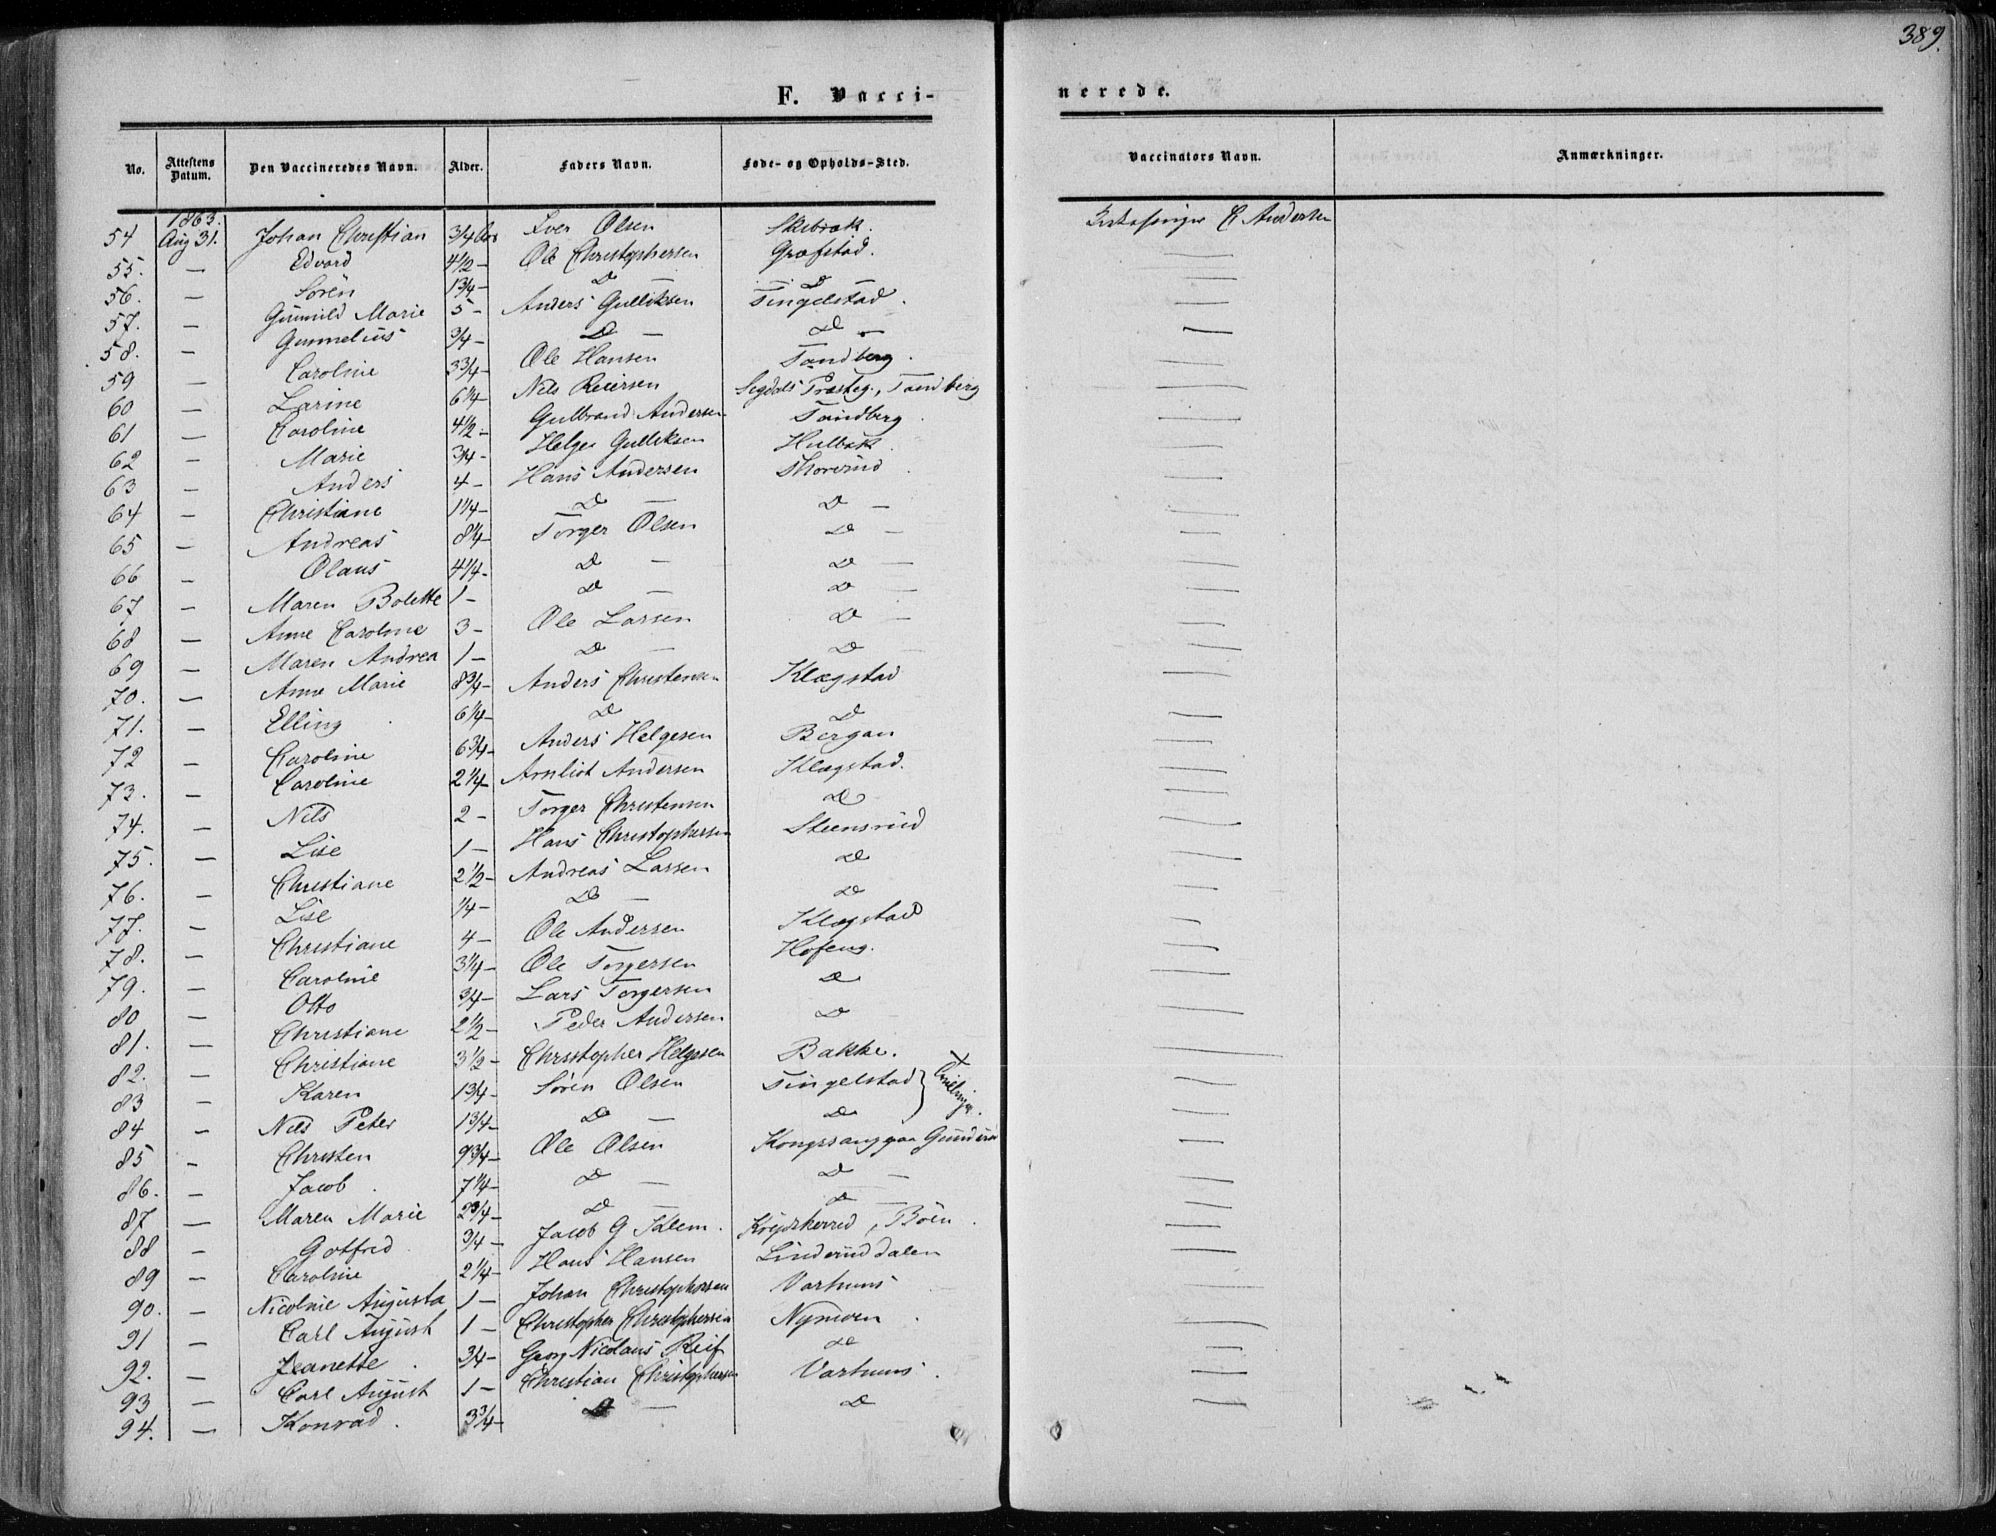 389.
F. Vacci-
nerede.
No. Attestens Datum. Den Vaccineredes Navn. Alder. Faders Navn. Føde- og Opholds-Sted. Vaccinators Navn. Anmærkninger.
1863.
54 Aug 31. Johan Christian 3/4 Aar Iver Olsen Skibræk. Kirkesanger C Andersen
55. — Edvard 4 1/2 — Ole Christophersen Græfstad. —
56. — Sören 1 3/4 — D — D —
57. — Gunnild Marie 5 — Anders Gulliksen Tingelstad. —
58. — Gunnelius 3/4 — D — D — —
59 — Caroline 3 3/4 — Ole Hansen Tandberg. —
60 — Larine 6 1/4 Nils Reiersen Sigdals Præsteg., Tandberg —
61 — Caroline 4 1/2 — Gulbrand Andersen Tandberg. —
62 — Marie 3/4 — Helge Gulliksen Hulbak. —
63 — Anders 4 — Hans Andersen Skorerud. —
64 — Christiane 1 1/4 — D — D — —
65 — Andreas 8 1/4 — Torger Olsen D — —
66 — Olaus 4 1/4 — D — D — —
67 — Maren Bolette 1 — D — D — —
68 — Anne Caroline 3 — Ole Larsen D — —
69 — Maren Andrea 1 — D — D — —
70. — Anne Marie 8 3/4 — Anders Christensen Klægstad —
71. — Elling 6 1/4 — D D —
72 — Caroline 6 3/4 — Anders Helgesen Bergan —
73. — Caroline 2 1/4 — Arnliot Andersen Klægstad. —
74. — Nils 2 — Torger Christensen D —
75. — Lise 1 — Hans Christophersen Steensrud —
76. — Christiane 2 1/2 — Andreas Larsen D —
77. — Lise 1/4 — D — D —
78. — Christiane 4 — Ole Andersen Klægstad —
79. — Caroline 3 1/4 — Ole Torgersen Hofeng. —
80 — Otto 3/4 — Lars Torgersen D —
81. — Christiane 2 1/2 — Peder Andersen D —
82. — Christiane 3 1/2 — Christopher Helgesen Bakke. —
83 — Karen 1 3/4 — Sören Olsen Tingelstad } × Tvillinger. —
84 — Nils Peter 1 3/4 — D — D —
85 — Christen 9 3/4 — Ole Olsen Kongssang —
86. — Jacob. 7 1/4 — D — D — —
87 — Maren Marie 2 3/4 — D — D — —
88 — Gotfred 3/4 — Jacob G Idlem. Böen. —
89 — Caroline 2 1/4 — Hans Hansen Linderuddalen —
90. — Nicoline Augusta 1 — Johan Christophersen Varhuus —
91 — Carl August 1 — Christopher Christophersen Nymoen. —
92. — Jeanette. 3/4 — Georg Nicolaus Reif D —
93 — Carl August 1 — Christian Christophersen Varhuus. —
94. — Konrad. 3 3/4 — D — D —